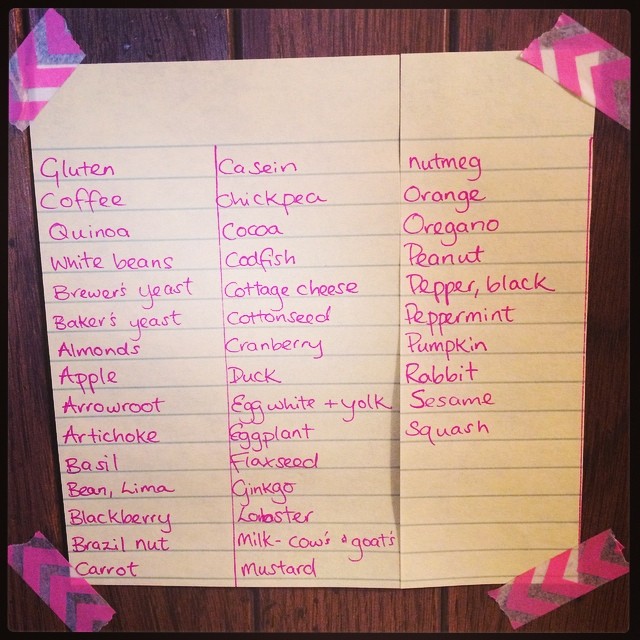 Gluten
Coffee
Quinoa
White beans
Brewer's yeast
Baker's yeast
Almonds
Apple
Arrowroot
Artichoke
Basil
Bean, Lima
Blackberry
Brazil nut
Carrot
Casein
Chickpea
Cocoa
Codfish
Cottage cheese
Cottonseed
Cranberry
Duck
Egg white + yolk
Eggplant
Flaxseed
Ginkgo
Lobster
Milk - cow's & goat's
Mustard
nutmeg
Orange
Oregano
Peanut
Pepper, black
Peppermint
Pumpkin
Rabbit
Sesame
Squash